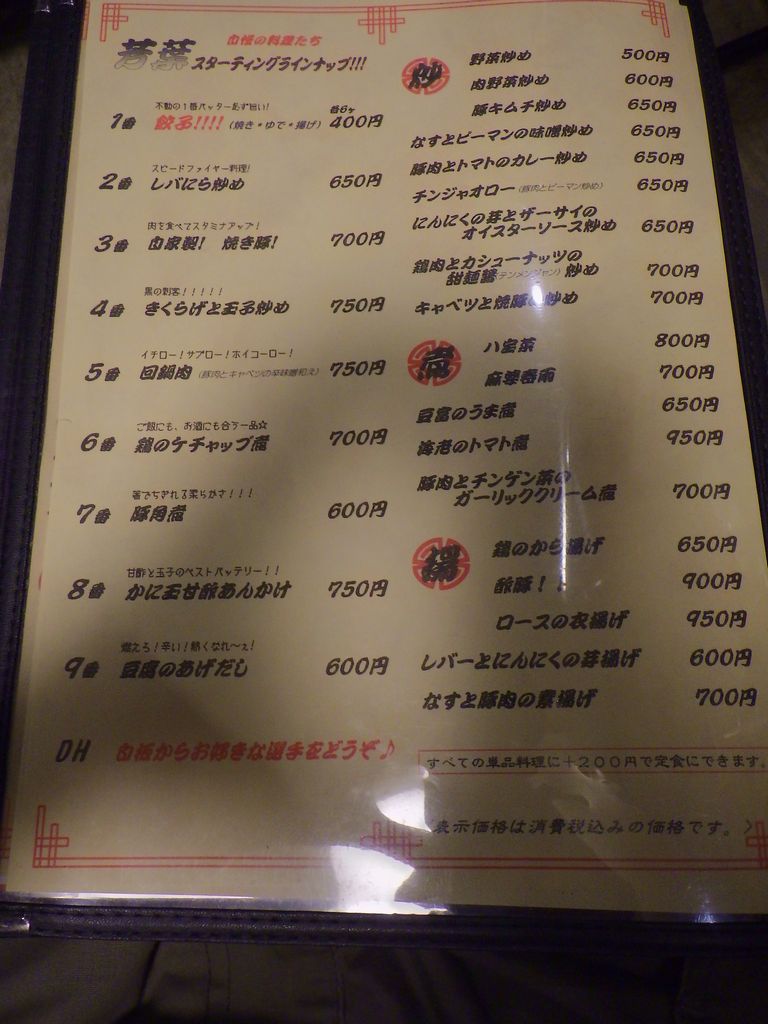 自慢の料理たち
若葉 スターティングラインナップ!!!
不動の1番バッター 必ず旨い!
1番 餃子!!!! (焼き・ゆで・揚げ) 各6ヶ 400円
スピードファイヤー料理!
2番 レバにら炒め 650円
肉を食べてスタミナアップ!
3番 自家製! 焼き豚! 700円
黒の刺客!!!!!
4番 きくらげと玉子炒め 750円
イチロー!サブロー!ホイコーロー!
5番 回鍋肉 (豚肉とキャベツの辛味噌和え) 750円
ご飯にも、お酒にも合う一品☆
6番 鶏のケチャップ煮 700円
箸でちぎれる柔らかさ!!!
7番 豚角煮 600円
甘酢と玉子のベストバッテリー!!
8番 かに玉甘酢あんかけ 750円
燃えろ!辛い!熱くなれ〜ぇ!
9番 豆腐のあげだし 600円
DH 自慢からお好きな選手をどうぞ♪
炒
野菜炒め 500円
肉野菜炒め 600円
豚キムチ炒め 650円
なすとピーマンの味噌炒め 650円
豚肉とトマトのカレー炒め 650円
チンジャオロー (豚肉とピーマン炒め) 650円
にんにくの芽とザーサイの
オイスターソース炒め 650円
鶏肉とカシューナッツの
甜麺醤(テンメンジャン)炒め 700円
キャベツと焼豚の炒め 700円
煮
八宝菜 800円
麻婆春雨 700円
豆富のうま煮 650円
海老のトマト煮 950円
豚肉とチンゲン菜の
ガーリッククリーム煮 700円
揚
鶏のから揚げ 650円
酢豚!! 900円
ロースの衣揚げ 950円
レバーとにんにくの芽揚げ 600円
なすと豚肉の素揚げ 700円
すべての単品料理に+200円で定食にできます。
〈表示価格は消費税込みの価格です。〉